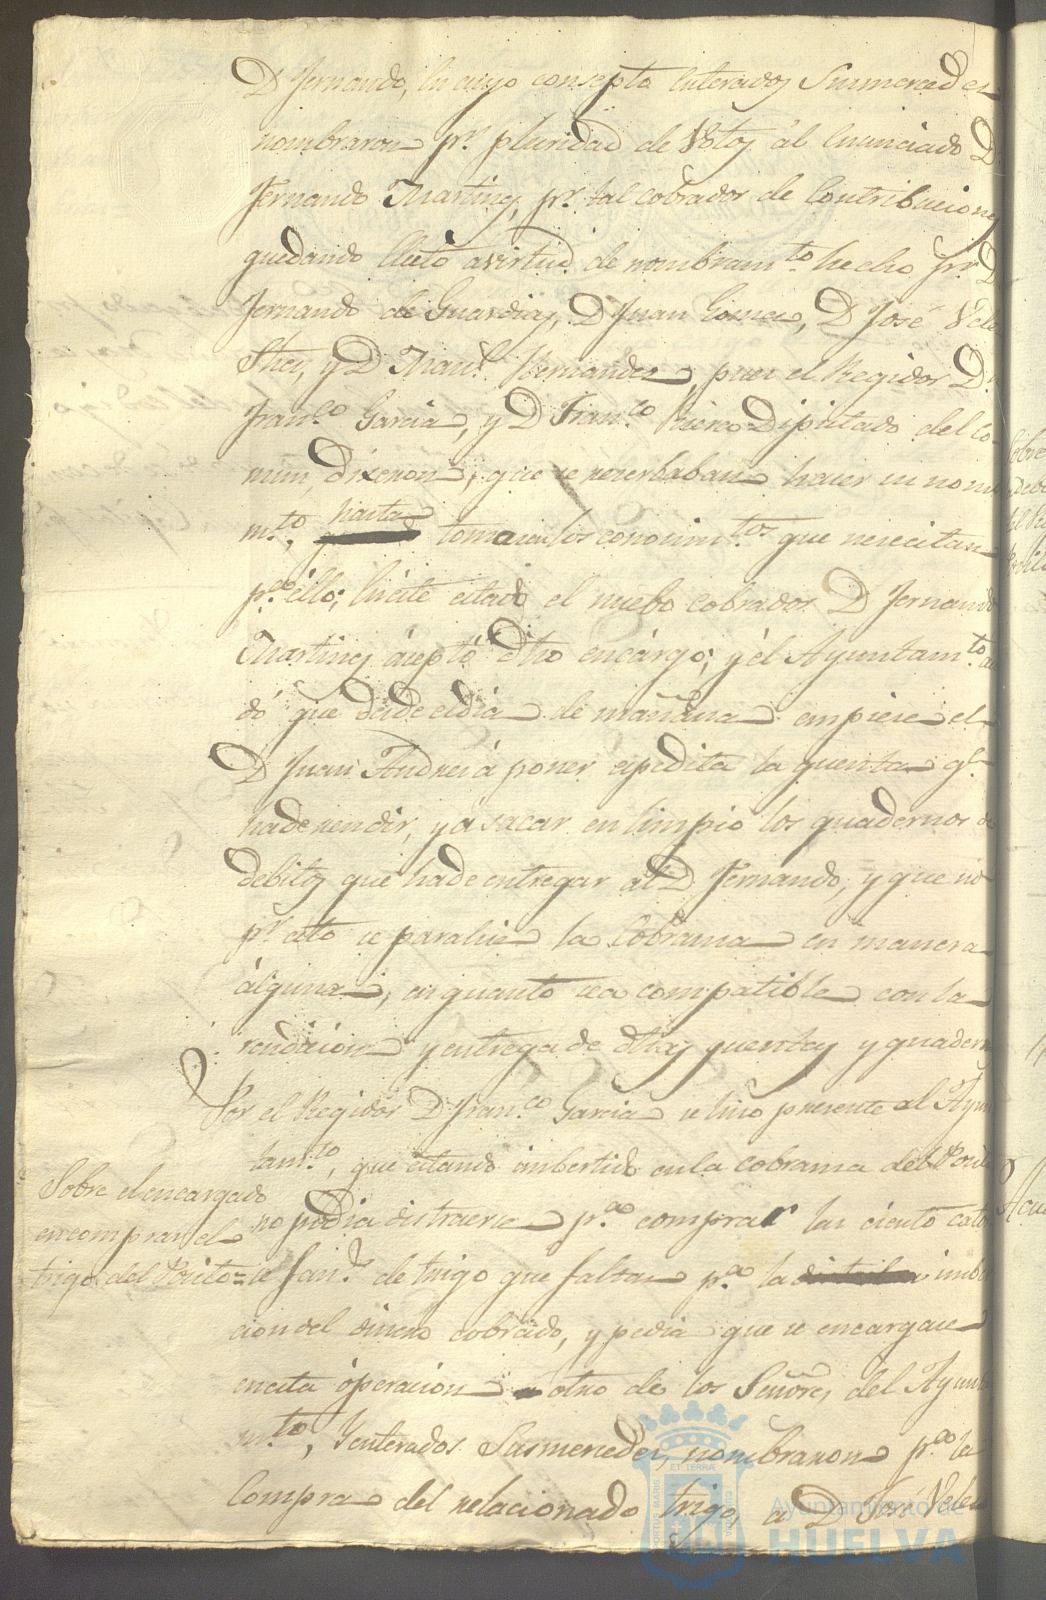 D. Fernando, en cuyo consepto enterados Susmercedes
nombraron pr. pluridad de Votos al enunciado D.
Fernando Martines, pr. tal cobrador de Contribuciones
quedando Electo a virtud de nombramto. hecho pr. D.
Fernando de Guardias, D. Juan Gomez, D. José Vele
Shez, y D. Manl. Hernandez, pues el Regidor Dn.
Franco. Garcia, y D. Franco. Diputado del Co-
mun dixeron, que se reserbaban hacer su nom
mto. hasta tomar los conosimtos. que nesecitan
pa. ello; en este estado el nuebo cobrador D. Fernando
Martines áceptó dho encárgo; y el Ayuntamto. acor
dó que desde el dia de mañana empiese el
D. Juan Andres á poner espedita la quenta qe.
ha de rendir, y a sacar en limpio los quadernos de
debitos que ha de entregar al D. Fernando, y que no
pr. esto se paralise la Cobransa en manera
álguna, en quanto sea compatible con la
rendicion y entrega de dhas quentas y quadern
Por el Regidor D. Franco. Garcia se hiso presente al Ayun
tamto. que estando inbertido en la cobransa del Posito
no podia distraerse pa. comprar las ciento cator
Sobre el encargado
en comprar el
trigo del Posito=
se fans. de trigo que faltan pa. la inber
cion del dinero cobrado, y pedia que se encargase
en esta óperacion a otro de los Señores del Ayunta
mto., Y enterados Susmercedes, nombraron pa. la
Compra del relacionado trigo, a D. José Veles
Sobre
Acue
ET TERRAE
PORTUS MARIS
Ayuntamiento de
HUELVA